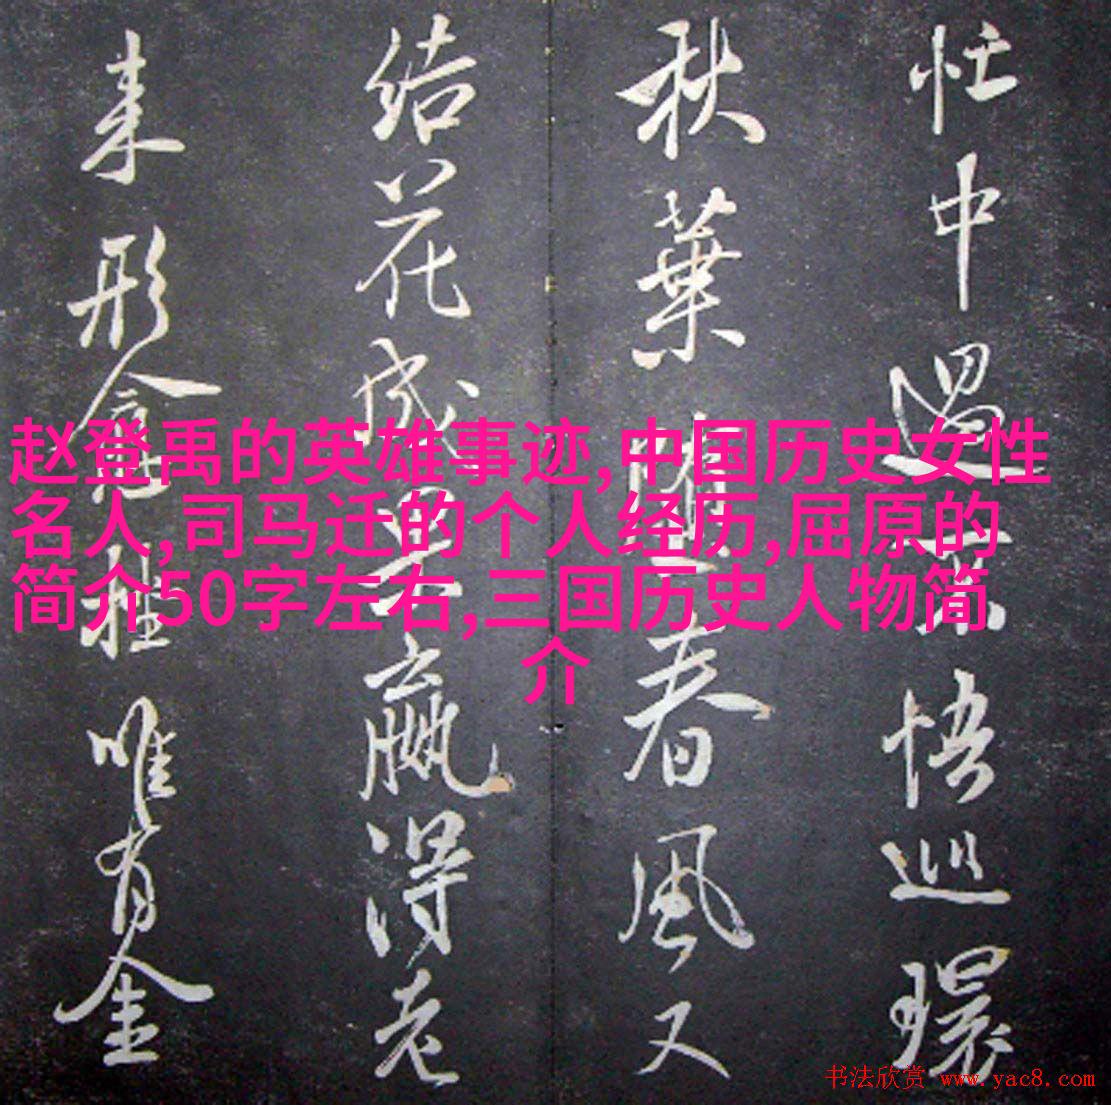 赵登禹的英雄事迹,中国历史女性
名人,司马迁的个人经历,屈原的
简介50字左右,三国历史人物简
介
忙中悟巡環
秋葉春風又
结花成贏得老
来形唯有金
书法欣赏 www.yac8.com